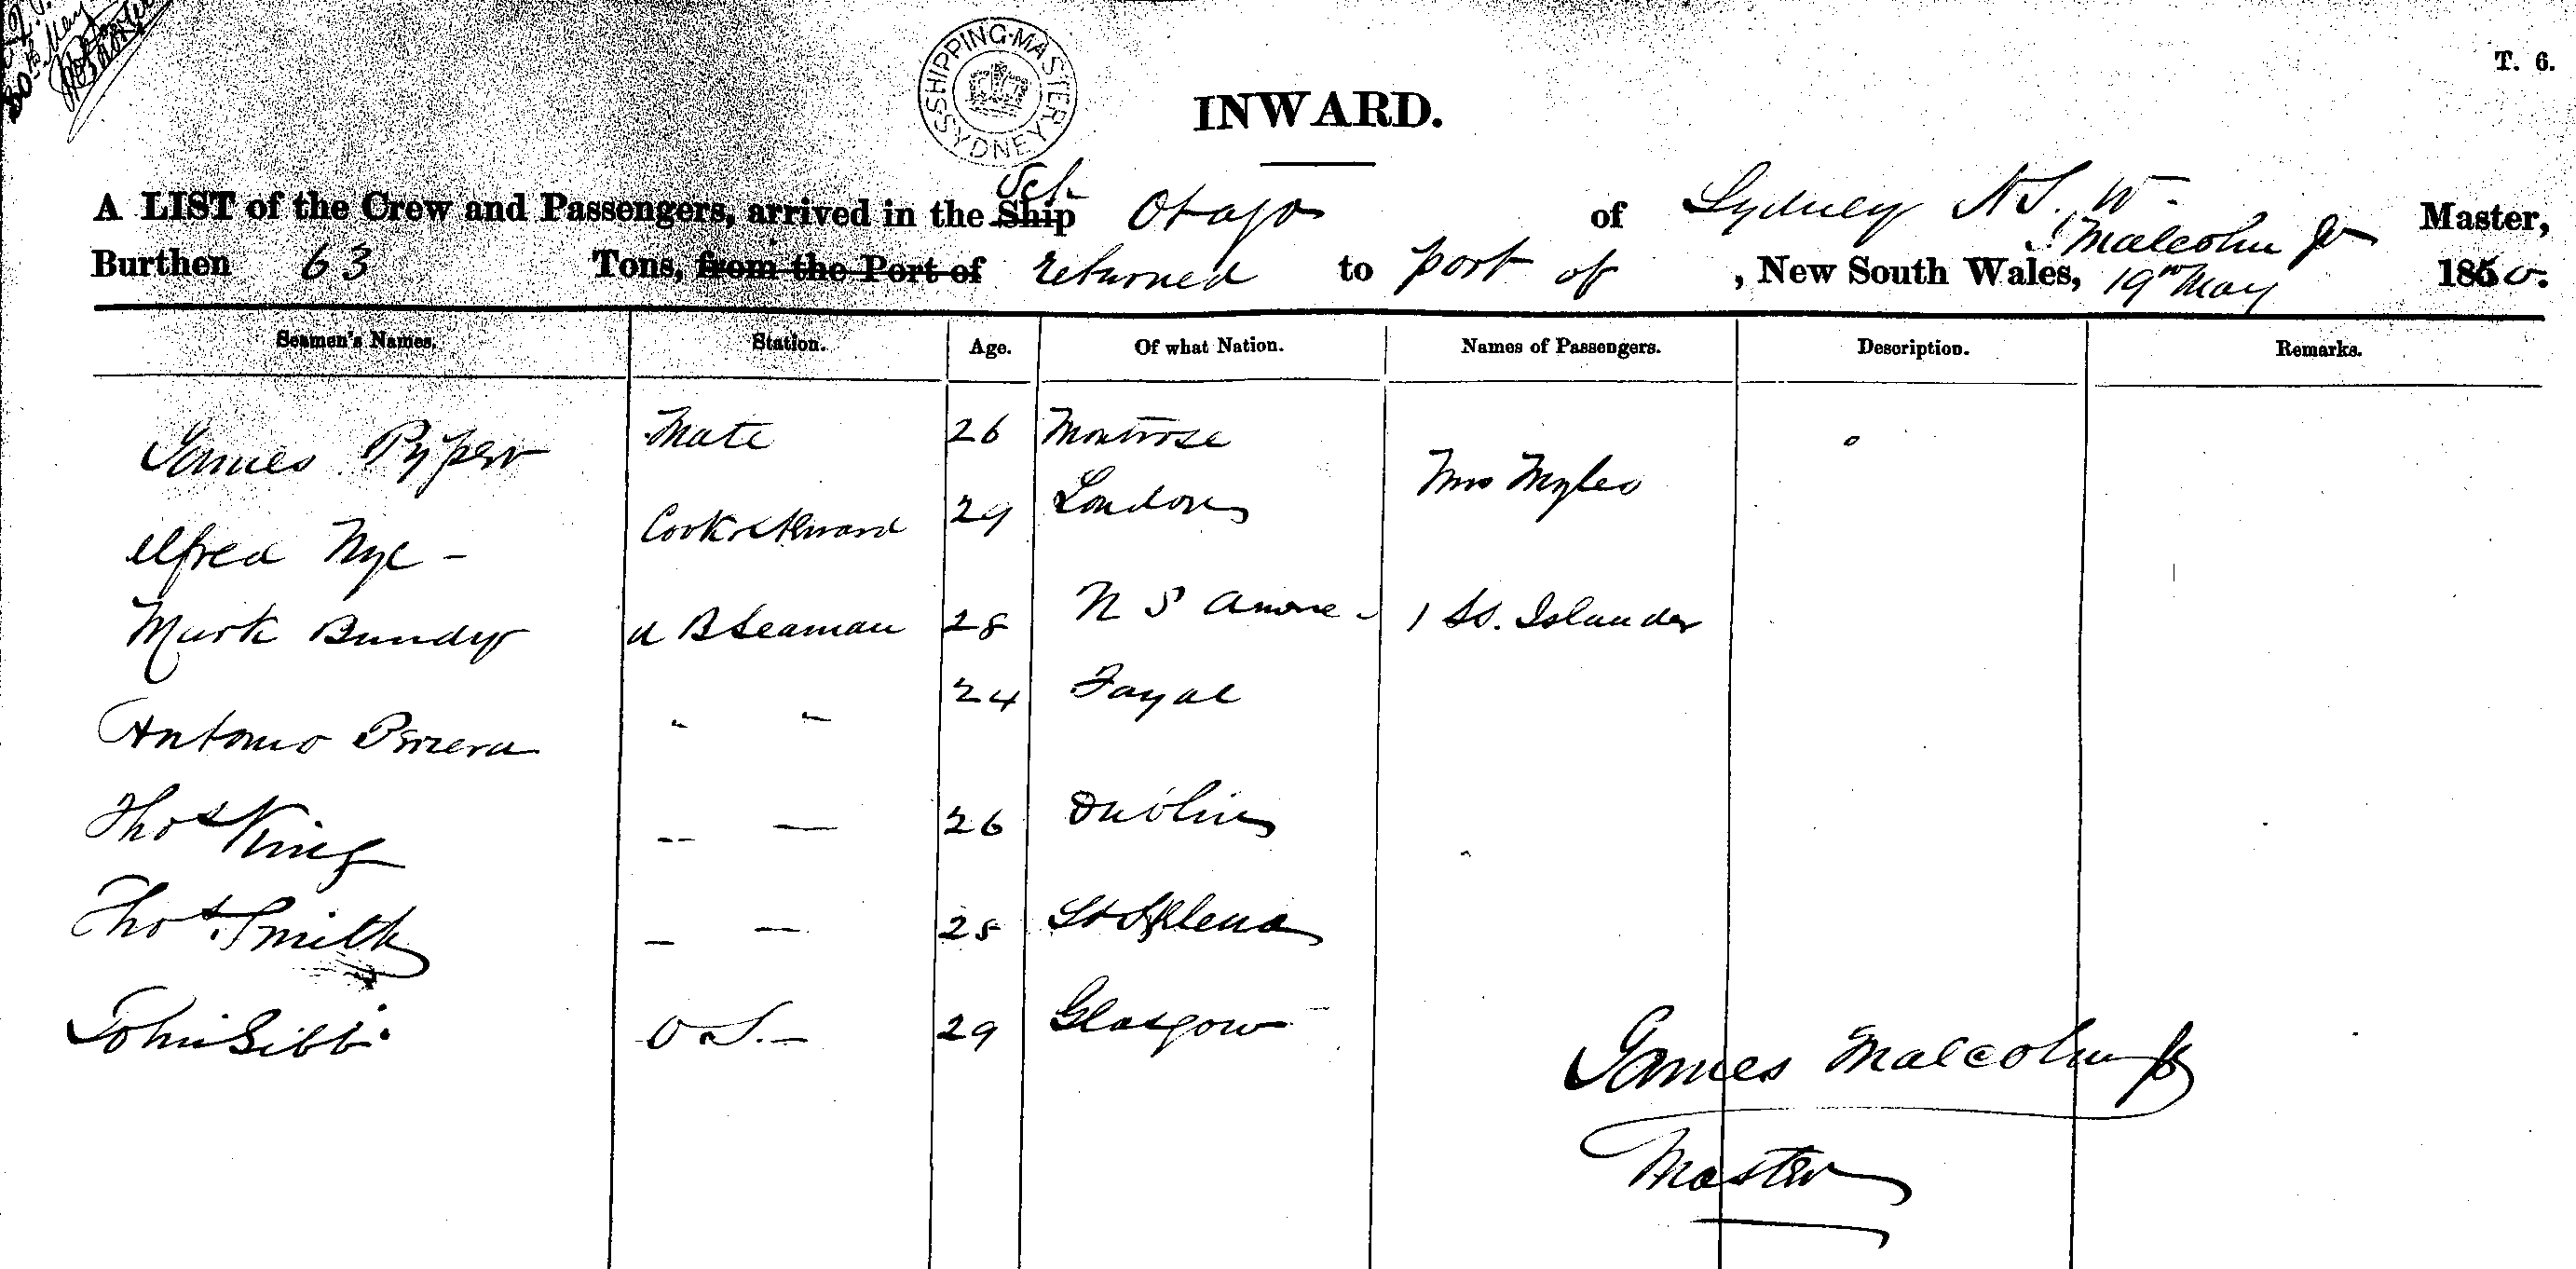 SHIPPING·MASTER SYDNEY
T. 6.
INWARD.
Sch
A LIST of the Crew and Passengers, arrived in the Ship Otago of Sydney N. S. W. J Malcolm Jr Master,
Burthen 63 Tons, from the Port of returned to port of , New South Wales, 19th May 1860.
Seamen's Names. Station. Age. Of what Nation. Names of Passengers. Description. Remarks.
James Pyper Mate 26 Montrose Mrs Myles
Alfred Nye - Cook & Steward 29 London
Mark Bundy A B Seaman 28 N S 1 So. Islander
Antonio " " 24 Fayal
Thos King -- — 26 Dublin
Thos. Smith — — 28 St Helena
John Gibb O S. — 29 Glasgow
James Malcolm Jr
Master